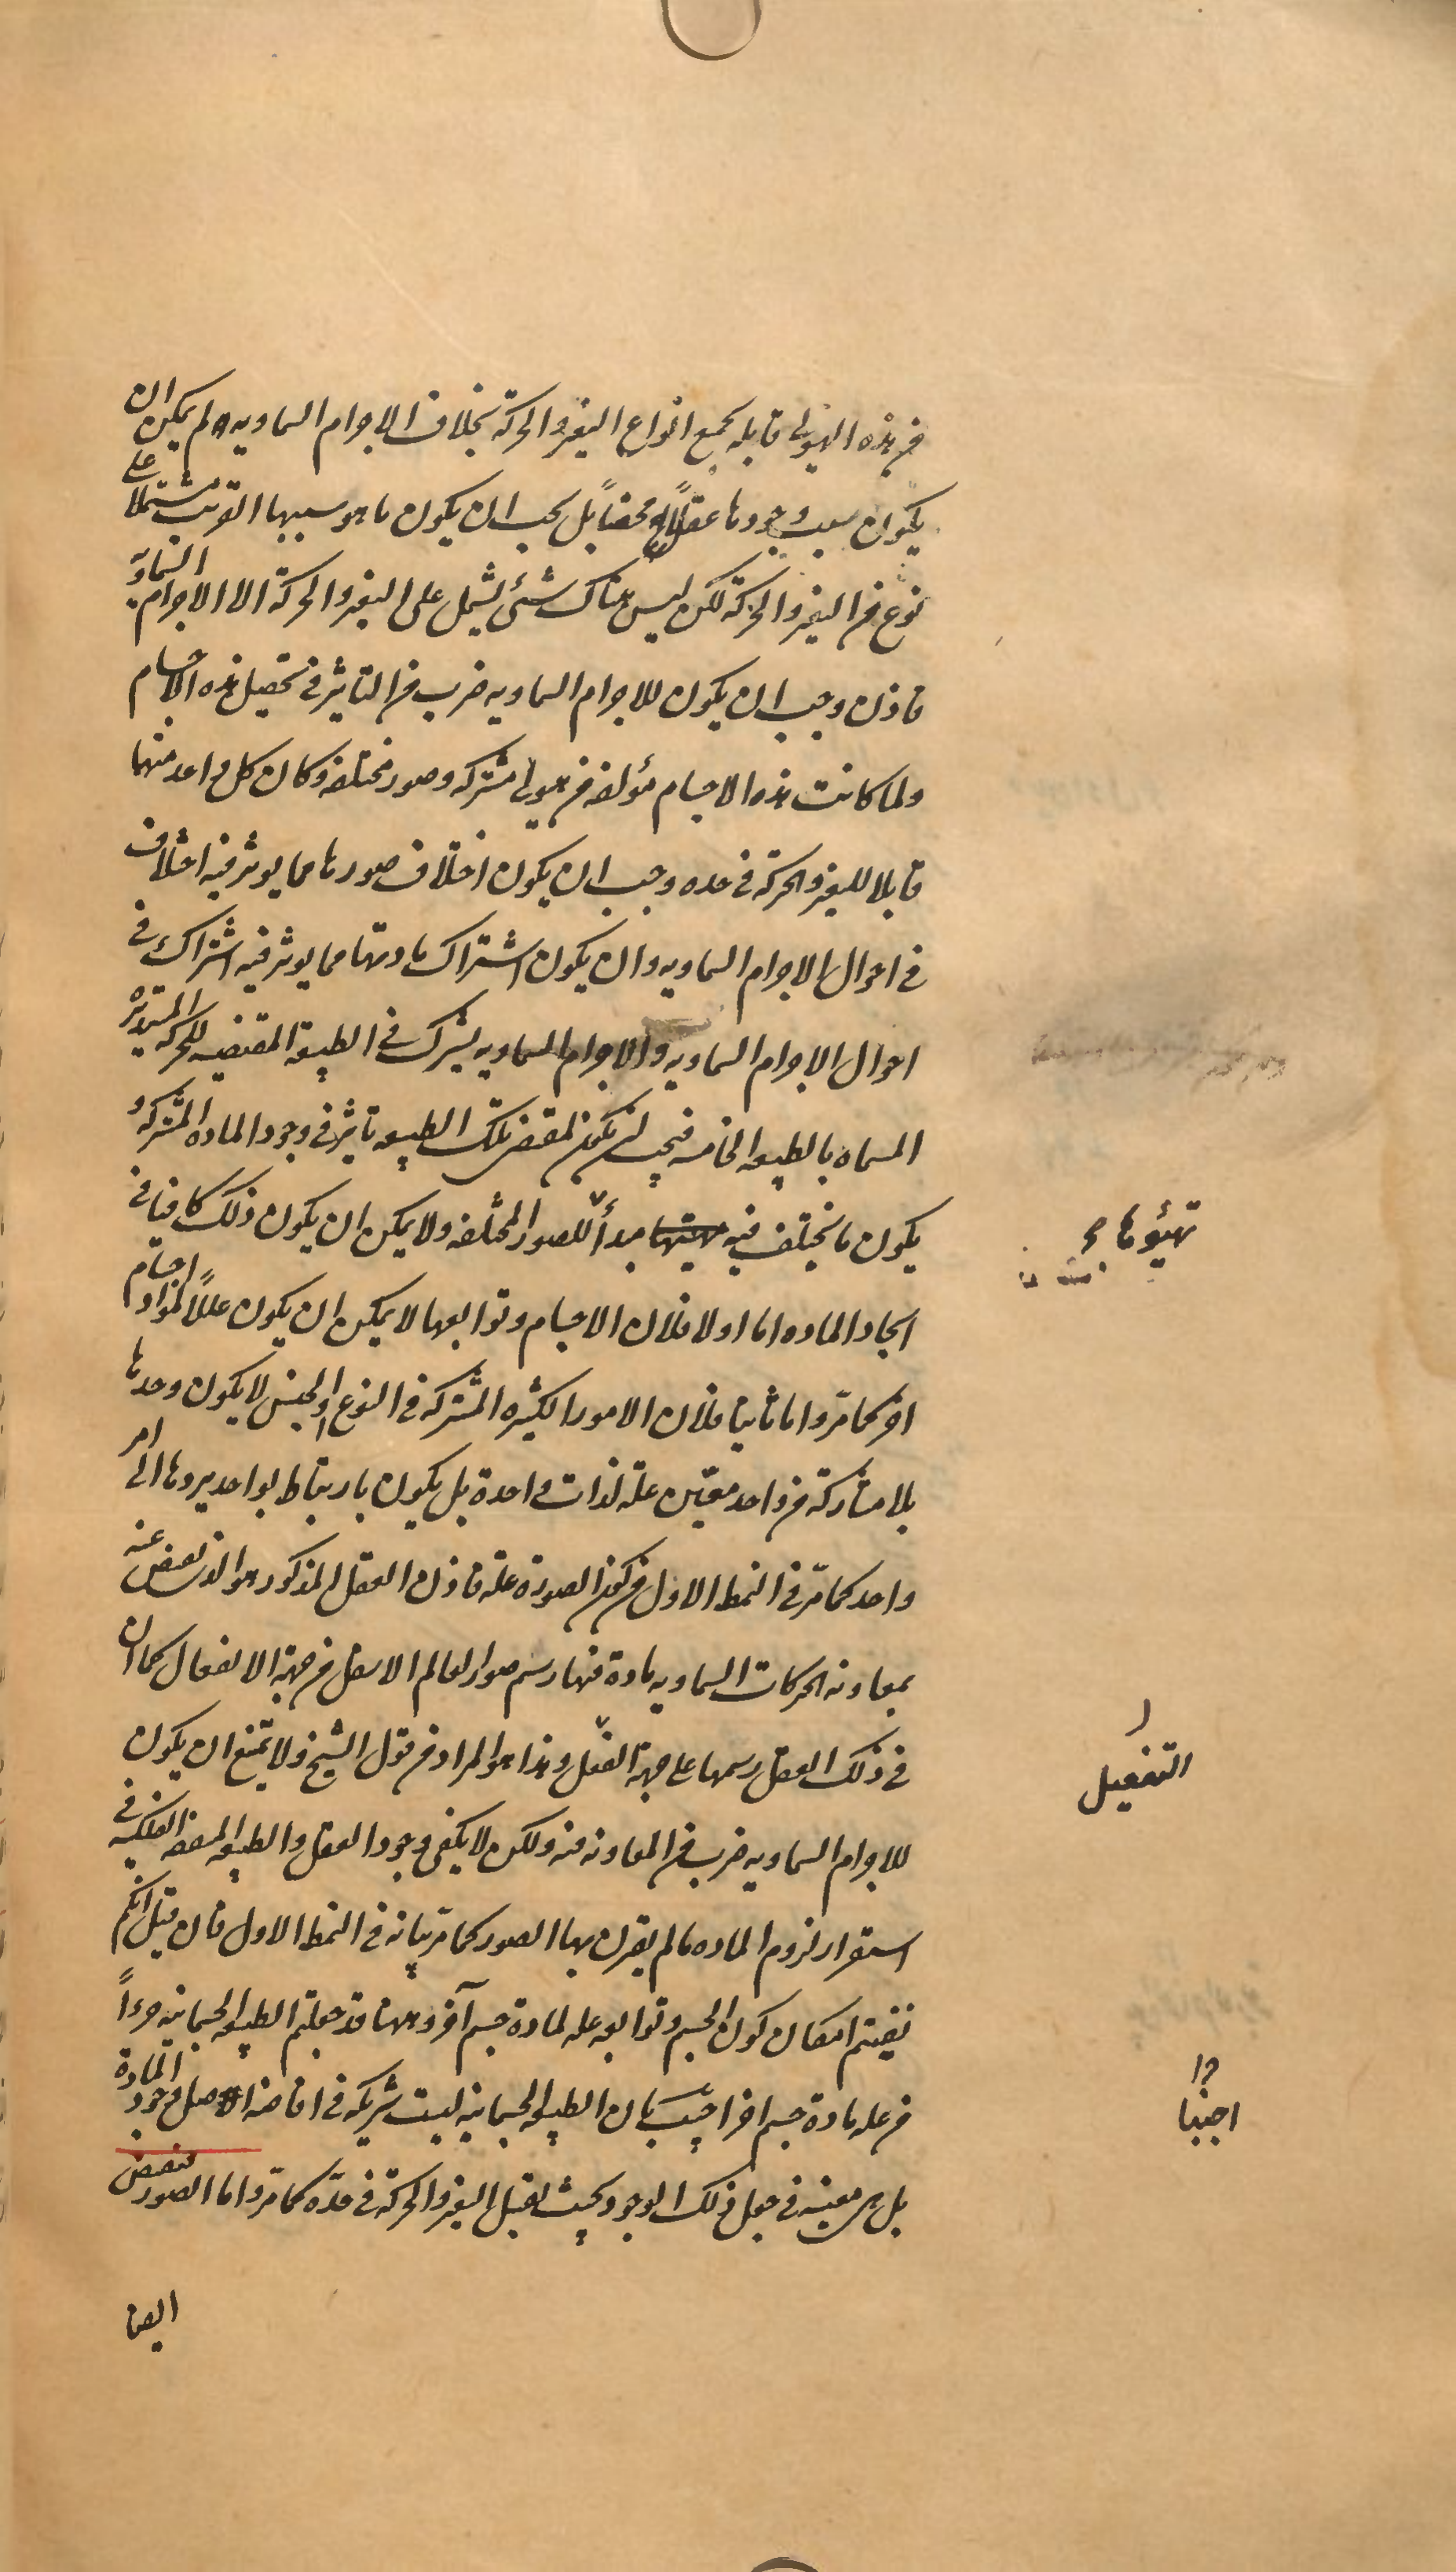 من هذه الهيولى قابله لجميع انواع التغير والحركة بخلاف الاجرام السماويه ولم يمكن ان
يكون سبب وجودها عقلاً محضاً بل يجب ان يكون ما هو سببها القريب مشتملا على
نوع من التغير والحركة لكن ليس هناك شئ يشمل على التغير والحركة الا الاجرام السماوية
فاذن وجب ان يكون للاجرام السماويه ضرب من التاثير فى تحصيل هذه الاجسام
ولما كانت هذه الاجسام مؤلفه من هيولى مشتركه وصور مختلفه وكان كل واحد منهما
قابلا للتغير والحركة فى حده وجب ان يكون اختلاف صورها مما يوثر فيه اختلاف
فى احوال الاجرام السماويه وان يكون اشتراك مادتها مما يوثر فيه اشتراك فى
احوال الاجرام السماويه والاجرام السماويه يشترك فى الطبيعة المقتضيه للحركه المستديرة
المسماه بالطبيعه الخامسه فيجب ان يكون لمقتضى تلك الطبيعه تاثير فى وجود الماده المشتركه و
يكون ما يختلف فيه مبدأ للصور المختلفه ولا يمكن ان يكون ذلك كافيا فى
تهيؤها
ايجاد الماده اما اولا فلان الاجسام وتوابعها لا يمكن ان يكون عللاً لمواد اجسام
اخر كما مرّ واما ثانيا فلان الامور الكثيره المشتركه فى النوع او الجنس لا يكون وحدها
بلا مشاركة من واحد معيّن علة لذات واحدة بل يكون بارتباط بواحد يردها الى امر
واحد كما مرّ فى النمط الاول من كون الصورة علة فاذن العقل المذكور هو الذى يفيض عنه
بمعاونه الحركات السماويه مادة فيها رسم صور العالم الاسفل من جهة الانفعال كما ان
فى ذلك العقل رسمها على جهة الفعل وهذا هو المراد من قول الشيخ ولا يمتنع ان يكون
التفعيل
للاجرام السماويه ضرب من المعاونه فيه ولكن لا يكفى وجود العقل والطبيعه الفلكيه فى
استقرار لزوم الماده ما لم يقترن بها الصور كما مرّ بيانه فى النمط الاول فان قيل انكم
نفيتم امكان كون الجسم وتوابعه عله لمادة جسم آخر وههنا قد جعلتم الطبيعه الجسمانيه جزءاً
من عله مادة جسم اخر اجيب بان الطبيعه الجسمانيه ليست شريكه فى افاضه اصل وجود المادة
اجبنا
بل هى معينه فى جعل ذلك الوجود بحيث يقبل التغير والحركة فى حدّه كما مرّ واما الصور فتفيض
ايضا